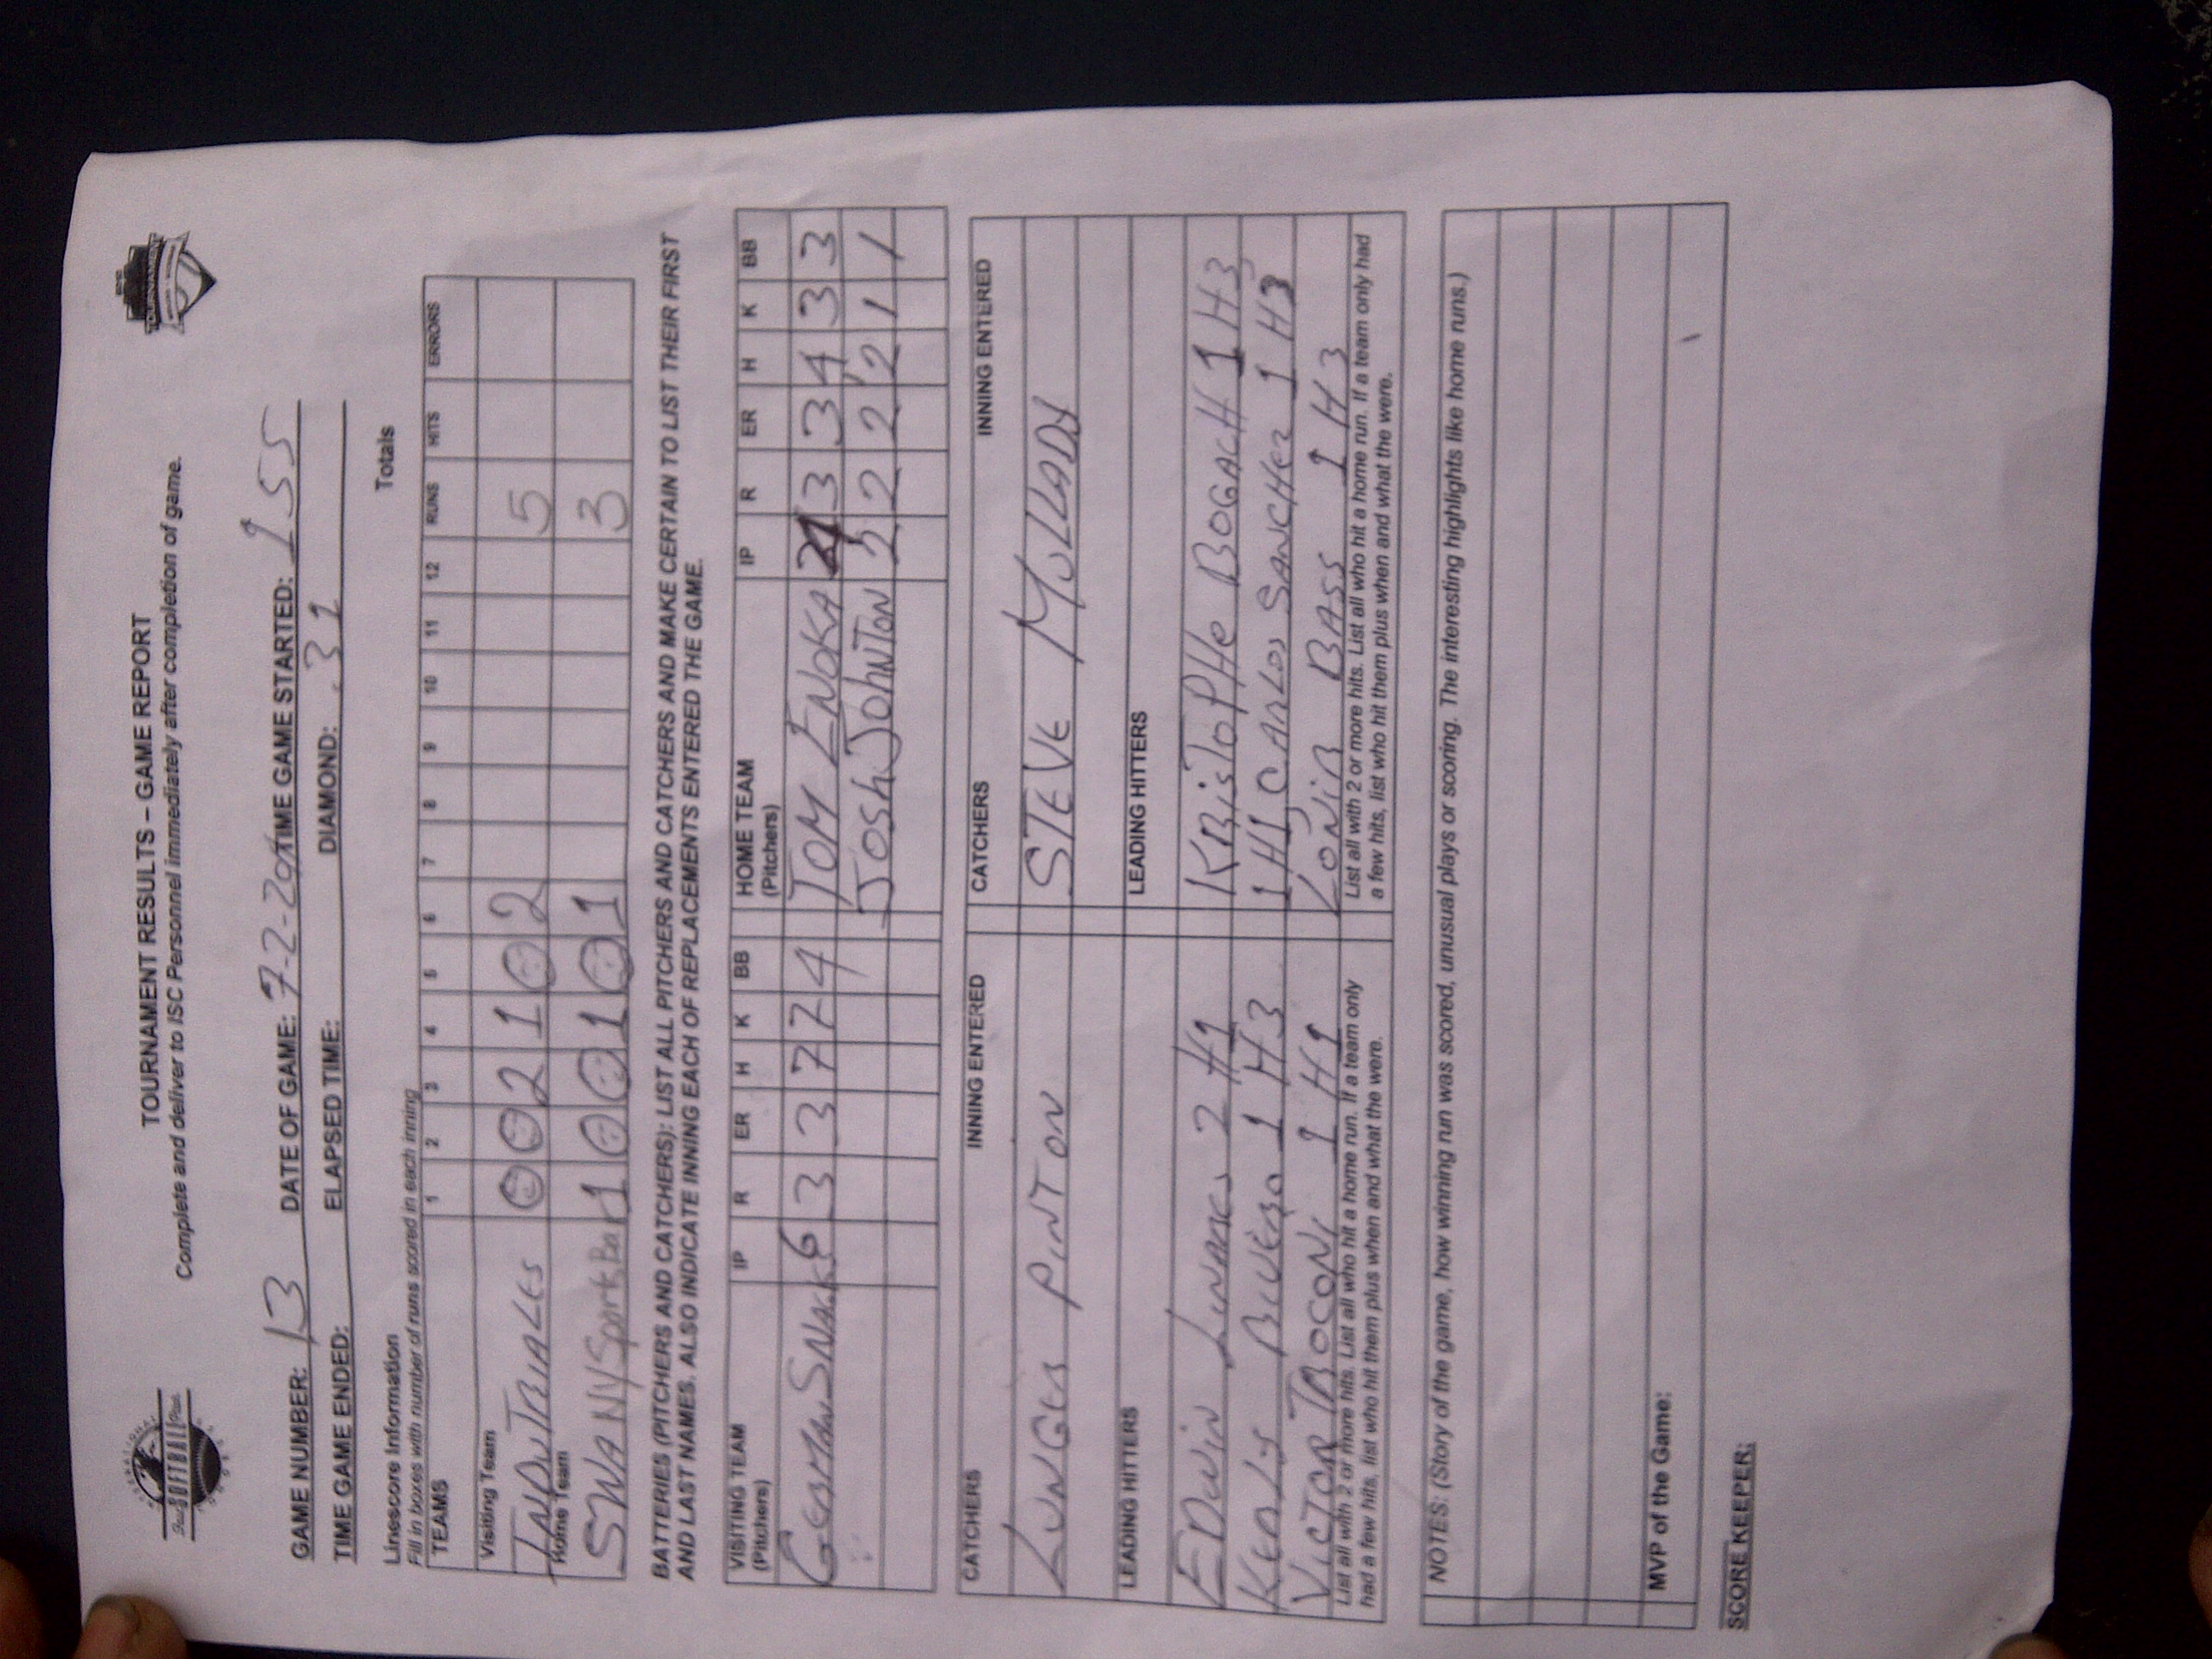 TOURNAMENT RESULTS – GAME REPORT
Complete and deliver to ISC Personnel immediately after completion of game.
SOFTBALL
GAME NUMBER: 13 DATE OF GAME: 7-2-20 TIME GAME STARTED: 155
TIME GAME ENDED: ELAPSED TIME: DIAMOND: 31
Linescore Information Totals
Fill in boxes with number of runs scored in each inning
TEAMS 1 2 3 4 5 6 7 8 9 10 11 12 RUNS HITS ERRORS
Visiting Team
INDUTRIALES 0 0 2 1 0 2 5
Home Team
SWA NY Sport Bar 1 0 0 1 0 1 3
BATTERIES (PITCHERS AND CATCHERS): LIST ALL PITCHERS AND CATCHERS AND MAKE CERTAIN TO LIST THEIR FIRST
AND LAST NAMES. ALSO INDICATE INNING EACH OF REPLACEMENTS ENTERED THE GAME.
VISITING TEAM IP R ER H K BB HOME TEAM IP R ER H K BB
(Pitchers) (Pitchers)
GERMAN 6 3 3 7 7 4 TOM ENOKA 4 3 3 4 3 3
JOSH JOHNTON 2 2 2 2 1 1
CATCHERS INNING ENTERED CATCHERS INNING ENTERED
PINTON STEVE MULLADY
LEADING HITTERS LEADING HITTERS
EDWIN LINARES 2 H1 KRISTOPHE BOGACH 1 H3
KENLY 1 H3 1H1 CARLOS SANCHEZ 1 H3
VICTOR 1 H1 BASS 1 H3
List all with 2 or more hits. List all who hit a home run. If a team only List all with 2 or more hits. List all who hit a home run. If a team only had
had a few hits, list who hit them plus when and what the were. a few hits, list who hit them plus when and what the were.
NOTES: (Story of the game, how winning run was scored, unusual plays or scoring. The interesting highlights like home runs.)
MVP of the Game:
SCORE KEEPER: